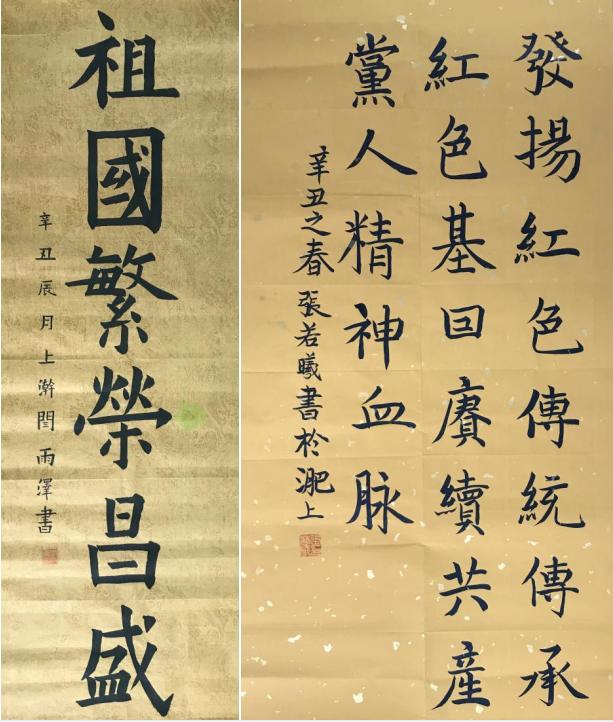 祖國繁榮昌盛
辛丑辰月上澣閆雨澤書
發揚紅色傳統傳承
紅色基回賡續共產
黨人精神血脉
辛丑之春張若曦書於淝上